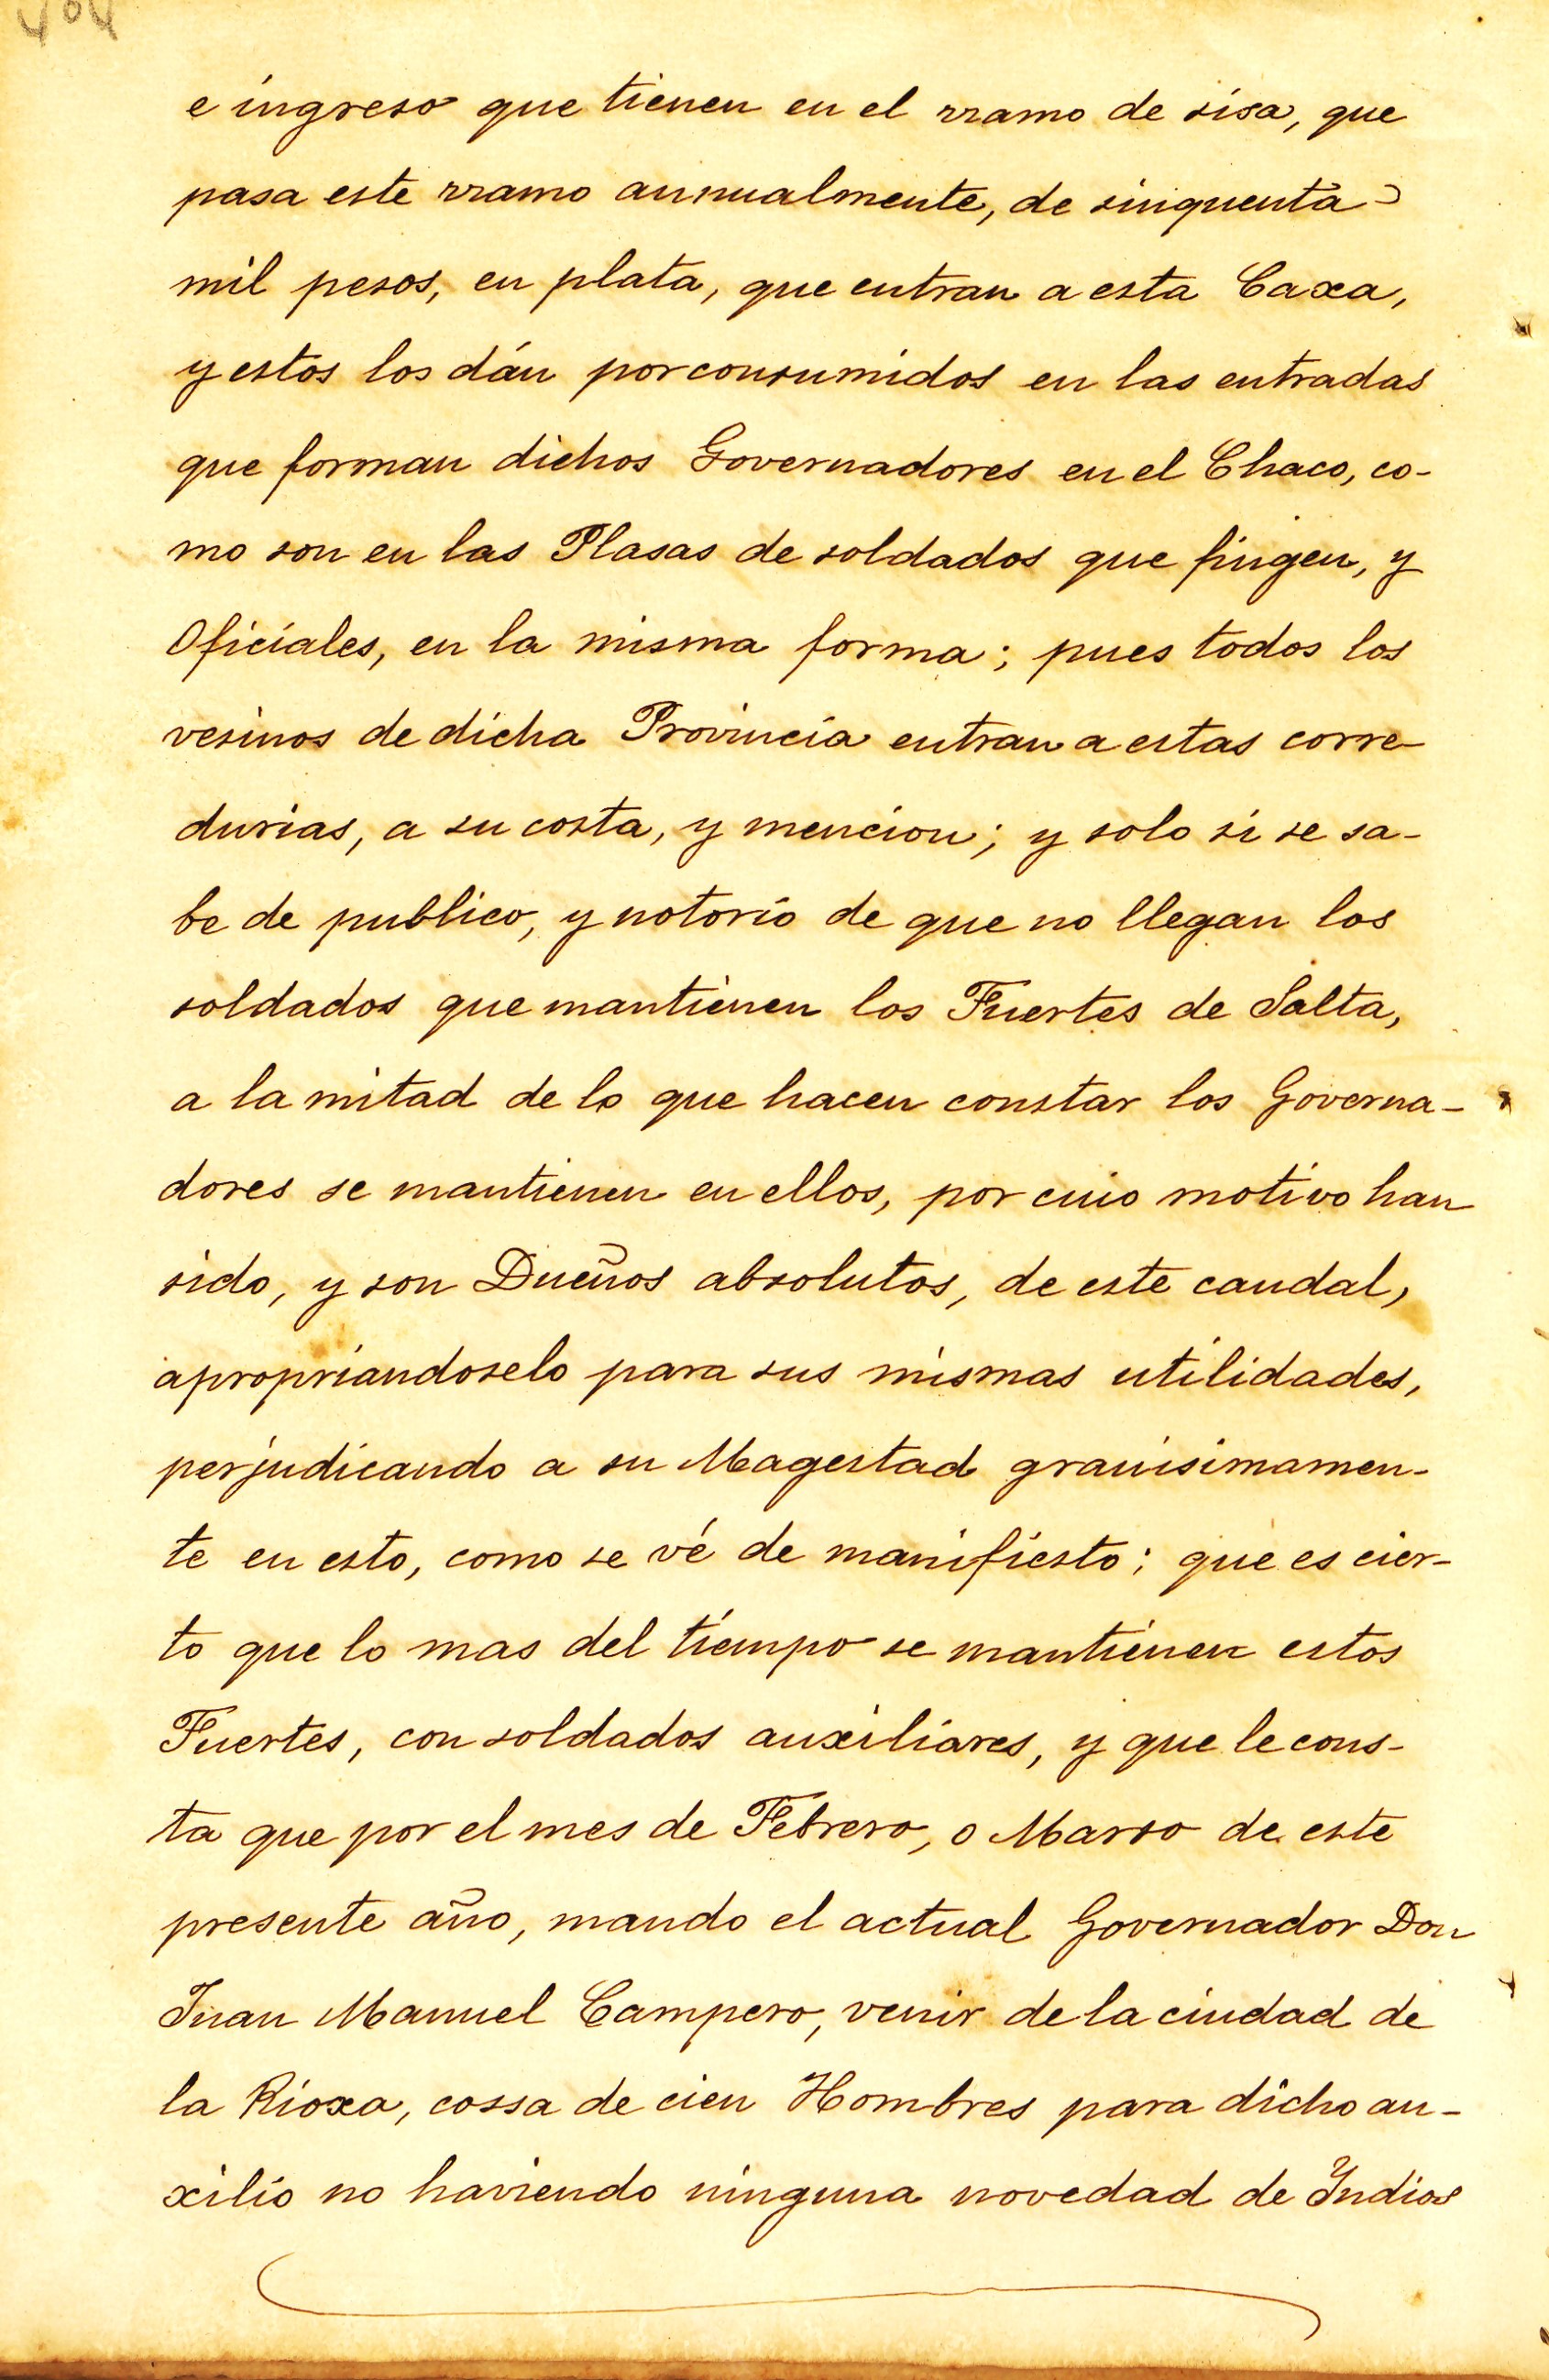 404
e ingreso que tienen en el rramo de sisa, que
pasa este rramo annualmente, de sinquenta
mil pesos, en plata, que entran a esta Caxa,
y estos los dán por consumidos en las entradas
que forman dichos Governadores en el Chaco, co-
mo son en las Plasas de soldados que fingen, y
Oficiales, en la misma forma; pues todos los
vesinos de dicha Provincia entran a estas corre-
durias, a su costa, y mencion; y solo si se sa-
be de publico, y notorio de que no llegan los
soldados que mantienen los Fuertes de Salta,
a la mitad de lo que hacen constar los Governa-
dores se mantienen en ellos, por cuio motivo han
sido, y son Dueños absolutos, de este caudal,
apropriandoselo para sus mismas utilidades,
perjudicando a su Magestad grauisimamen-
te en esto, como se vé de manifiesto; que es cier-
to que lo mas del tiempo se mantienen estos
Fuertes, con soldados auxiliares, y que le cons-
ta que por el mes de Febrero, o Marso de este
presente año, mando el actual Governador Don
Juan Manuel Campero, venir de la ciudad de
la Rioxa, cossa de cien Hombres para dicho au-
xilio no haviendo ninguna novedad de Yndios